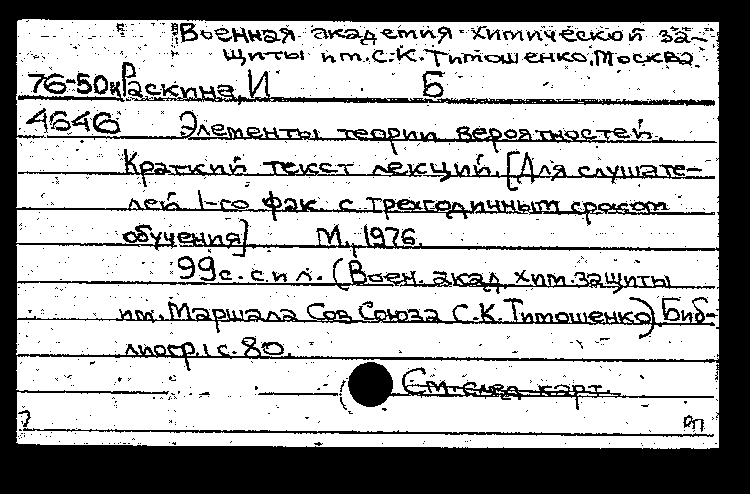 Военная академия химической за-
щиты им. С.К. Тимошенко, Москва.
76-50к Раскина, И Б
4646 Элементы теории вероятностей.
Краткий текст лекций. [Для слушате-
лей 1-го фак. с трехгодичным сроком
обучения] М., 1976.
99 с. с ил. (Воен. акад. хим. защиты
им. Маршала Сов Союза С.К. Тимошенко) Биб-
лиогр.: с. 80.
См. след карт.
РП